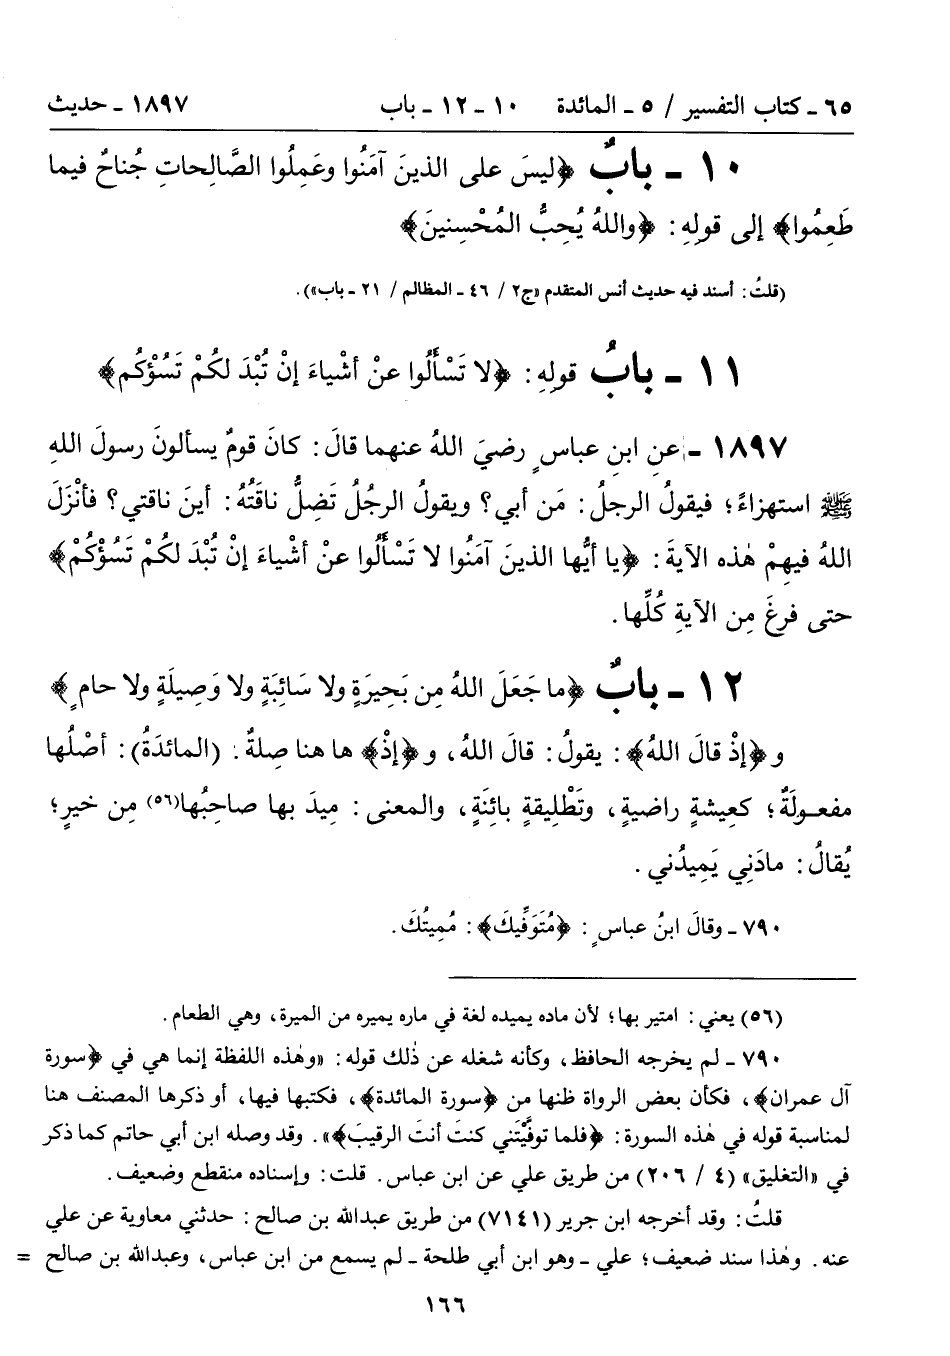 ٦٥ ـ كتاب التفسير / ٥ ـ المائدة ١٠ ـ ١٢ ـ باب ١٨٩٧ ـ حديث
١٠ ـ بابٌ ﴿ليسَ على الذينَ آمَنُوا وعَمِلُوا الصَّالِحاتِ جُناحٌ فيما
طَعِمُوا﴾ إلى قولِهِ: ﴿واللهُ يُحِبُّ المُحْسِنينَ﴾
(قلتُ: أسند فيه حديث أنس المتقدم «ج٢ / ٤٦ ـ المظالم / ٢١ ـ باب»).
١١ ـ بابُ قولِهِ: ﴿لا تَسْأَلُوا عنْ أشْياءَ إنْ تُبْدَ لكُمْ تَسُؤكُم﴾
١٨٩٧ ـ عنِ ابنِ عباسٍ رضيَ اللهُ عنهما قالَ: كانَ قومٌ يسألونَ رسولَ اللهِ
ﷺ استهزاءً؛ فيقولُ الرجلُ: مَن أبي؟ ويقولُ الرجُلُ تَضِلُّ ناقَتُهُ: أينَ ناقتي؟ فأنْزَلَ
اللهُ فيهِمْ هٰذه الآيةَ: ﴿يا أيُّها الذينَ آمَنُوا لا تَسْأَلُوا عنْ أشْياءَ إنْ تُبْدَ لكُمْ تَسُؤْكُمْ﴾
حتى فرغَ مِن الآيةِ كُلِّها.
١٢ ـ بابٌ ﴿ما جَعَلَ اللهُ مِن بَحِيرَةٍ ولا سَائِبَةٍ ولا وَصِيلَةٍ ولا حامٍ﴾
و﴿إذْ قالَ اللهُ﴾: يقولُ: قالَ اللهُ، و﴿إذْ﴾ ها هنا صِلةٌ. (المائدَةُ): أصْلُها
مفعـولَةٌ؛ كعِيشةٍ راضيةٍ، وتَطْلِيقةٍ بائِنَةٍ، والمعنى: مِيدَ بها صاحبُها(٥٦) مِن خيرٍ؛
يُقالُ: مادَنِي يَمِيدُني.
٧٩٠ ـ وقالَ ابنُ عباسٍ: ﴿مُتَوَفِّيكَ﴾: مُمِيتُكَ.
(٥٦) يعني: امتير بها؛ لأن ماده يميده لغة في ماره يميره من الميرة، وهي الطعام.
٧٩٠ ـ لم يخرجه الحافظ، وكأنه شغله عن ذٰلك قوله: «وهٰذه اللفظة إنما هي في ﴿سورة
آل عمران﴾، فكأن بعض الرواة ظنها من ﴿سورة المائدة﴾، فكتبها فيها، أو ذكرها المصنف هنا
لمناسبة قوله في هٰذه السورة: ﴿فلما توفَّيْتَني كنتَ أنتَ الرقيبَ﴾». وقد وصله ابن أبي حاتم كما ذكر
في «التغليق» (٤ / ٢٠٦) من طريق علي عن ابن عباس. قلت: وإسناده منقطع وضعيف.
قلتُ: وقد أخرجه ابن جرير (٧١٤١) من طريق عبدالله بن صالح: حدثني معاوية عن علي
عنه. وهٰذا سند ضعيف؛ علي ـ وهو ابن أبي طلحة ـ لم يسمع من ابن عباس، وعبدالله بن صالح =
١٦٦